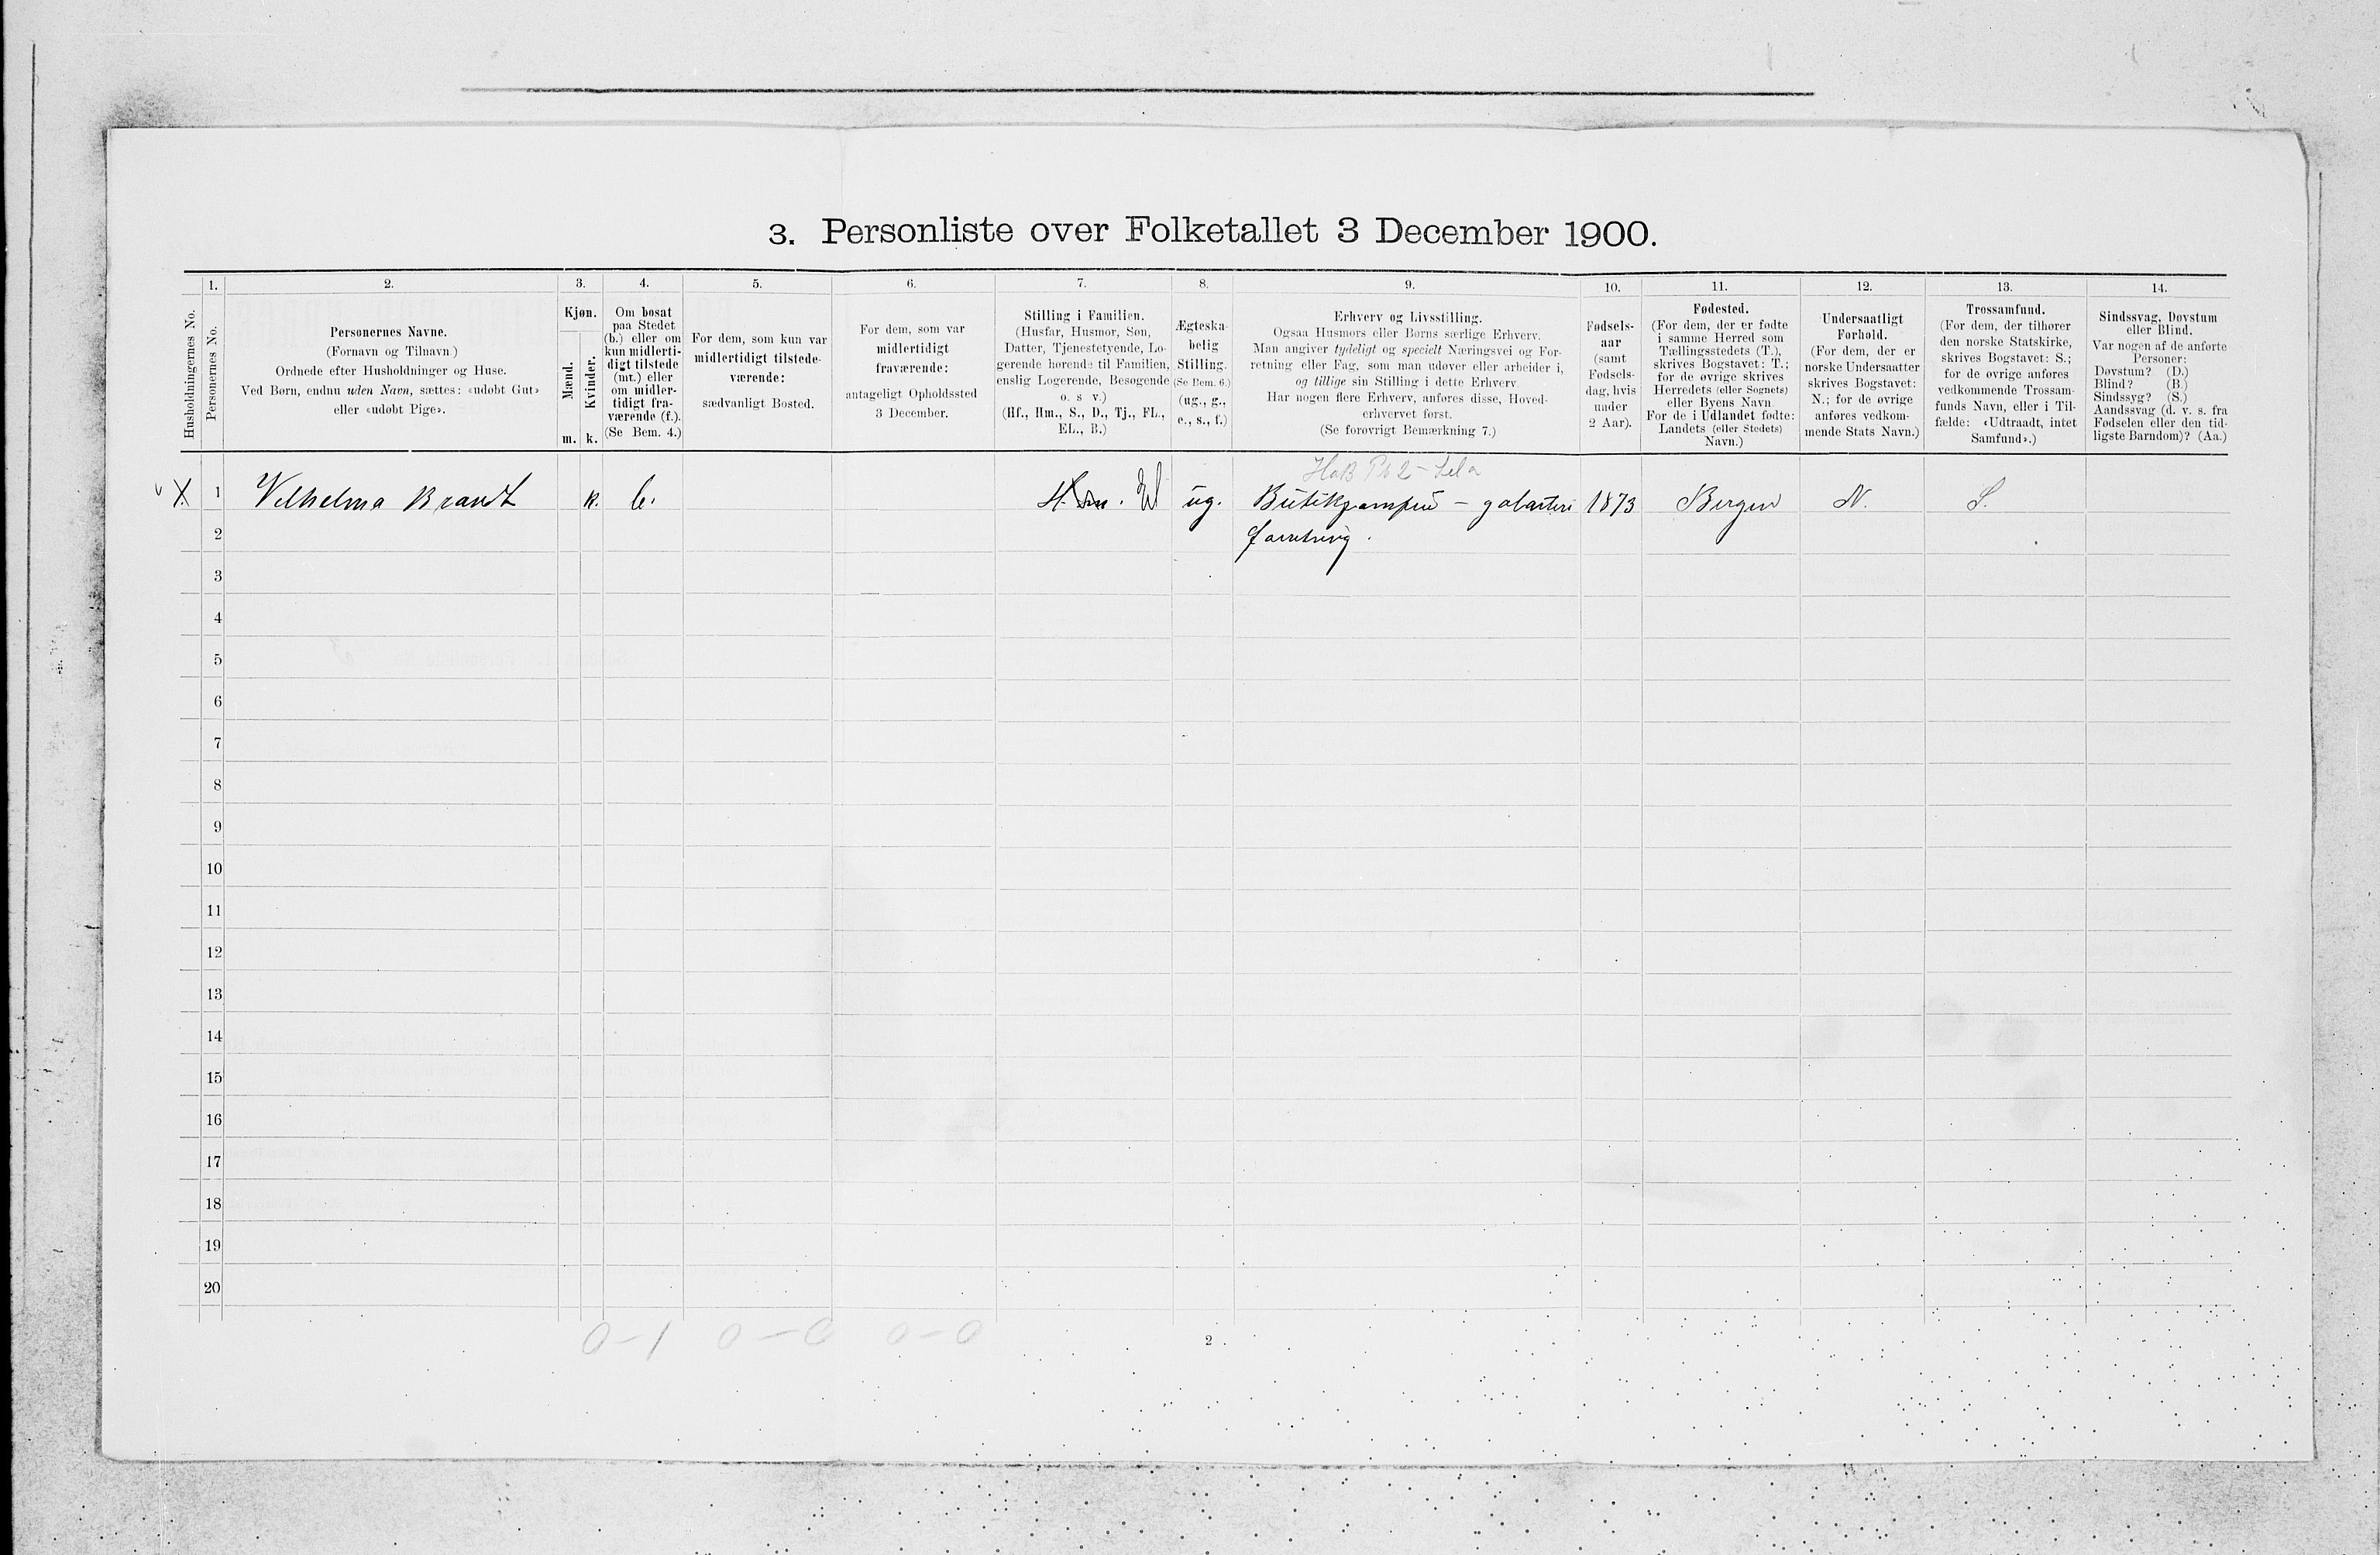 3. Personliste over Folketallet 3 December 1900.
1. 2. 3. 4. 5. 6. 7. 8. 9. 10. 11. 12. 13. 14.
Husholdningernes No.
Personernes No.
Personernes Navne.
(Fornavn og Tilnavn)
Ordnede efter Husholdninger og Huse.
Ved Børn, endnu uden Navn, sættes: «udøbt Gut»
eller «udøbt Pige».
Kjøn.
Mænd.
Kvinder.
m. k.
Om bosat
paa Stedet
(b.) eller om
kun midlerti-
digt tilstede
(mt.) eller
om midler-
tidigt fra-
værende (f.).
(Se Bem. 4.)
For dem, som kun var
midlertidigt tilstede-
værende:
sædvanligt Bosted.
For dem, som var
midlertidigt
fraværende:
antageligt Opholdssted
3 December.
Stilling i Familien.
(Husfar, Husmor, Søn,
Datter, Tjenestetyende, Lo-
gerende hørende til Familien,
enslig Logerende, Besøgende
o. s v.)
(Hf., Hm., S., D., Tj., FL.,
EL., B.)
Ægteska-
belig
Stilling.
(Se Bem. 6.)
(ug., g.,
e., s., f.)
Erhverv og Livsstilling.
Ogsaa Husmors eller Børns særlige Erhverv.
Man angiver tydeligt og specielt Næringsvei og For-
retning eller Fag, som man udøver eller arbeider i,
og tillige sin Stilling i dette Erhverv
Har nogen flere Erhverv, anføres disse, Hoved-
erhvervet først.
(Se forøvrigt Bemærkning 7.)
Fødsels-
aar
(samt
Fødsels-
dag, hvis
under
2 Aar).
Fødested.
(For dem, der er fødte
i samme Herred som
Tællingsstedets (T.),
skrives Bogstavet: T.;
for de øvrige skrives
Herredets (eller Sognets)
eller Byens Navn
For de i Udlandet fødte:
Landets (eller Stedets)
Navn.)
Undersaatligt
Forhold.
(For dem, der er
norske Undersaatter
skrives Bogstavet:
N.; for de øvrige
anføres vedkom-
mende Stats Navn.)
Trossamfund.
(For dem, der tilhører
den norske Statskirke,
skrives Bogstavet: S.;
for de øvrige anføres
vedkommende Trossam-
funds Navn, eller i Til-
fælde: «Udtraadt, intet
Samfund».)
Sindssvag, Døvstum
eller Blind.
Var nogen af de anførte
Personer:
Døvstum? (D.)
Blind? (B.)
Sindssyg? (S.)
Aandssvag (d. v. s. fra
Fødselen eller den tid-
ligste Barndom)? (Aa.)
X. 1 Vilhelma Brandt k. b. El ug. Butikjomfru – galanteri 1873 Bergen N. S.
2 forretning.
3
4
5
6
7
8
9
10
11
12
13
14
15
16
17
18
19
20
0–1 0–0 0–0
2